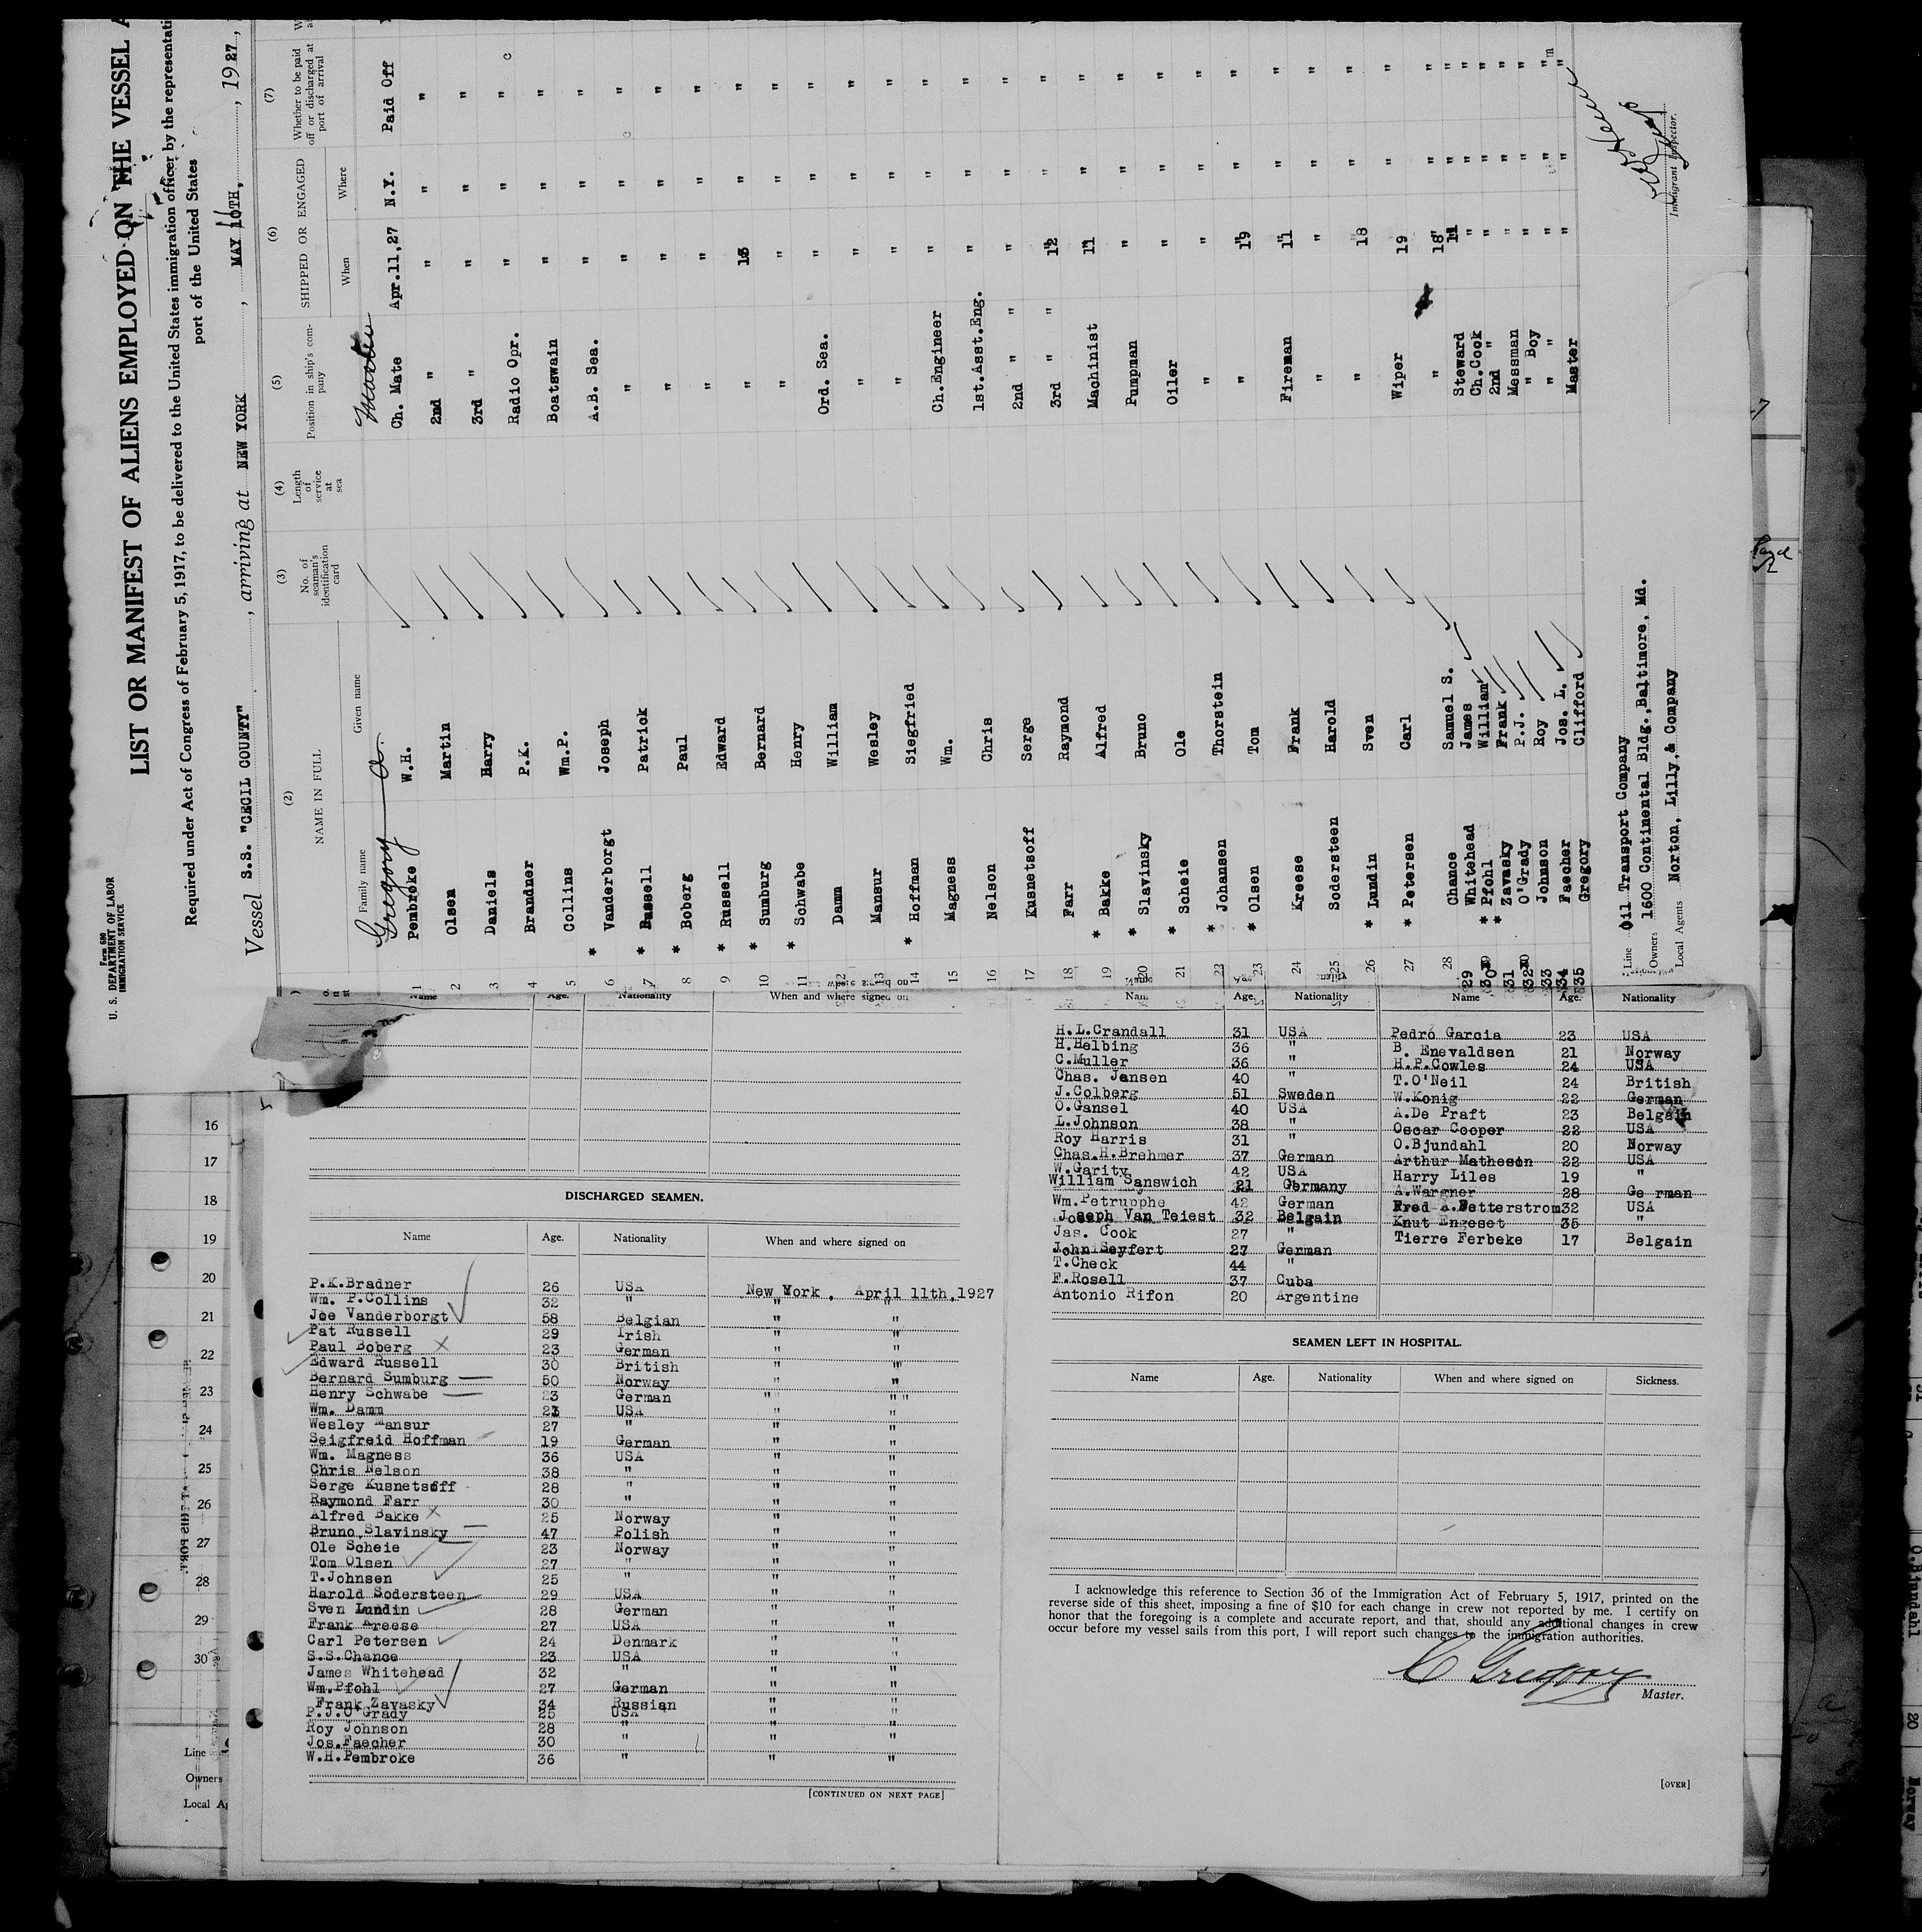 Form 680
U. S. DEPARTMENT OF LABOR
IMMIGRATION SERVICE
LIST OR MANIFEST OF ALIENS EMPLOYED ON THE VESSEL A
Required under Act of Congress of February 5, 1917, to be delivered to the United States immigration officer by the representati
port of the United States
Vessel S.S. "CECIL COUNTY", arriving at NEW YORK, MAY 10TH, 1927,
(2) (3) (4) (5) (6) (7)
NAME IN FULL No. of seaman's identification card Length of service at sea Position in ship's company SHIPPED OR ENGAGED Whether to be paid off or discharged at port of arrival
Family name Given name When Where
Gregory C. Master
1 Pembroke W.H. Ch. Mate Apr.11,27 N.Y. Paid Off
2 Olsen Martin 2nd " " " "
3 Daniels Harry 3rd " " " "
4 Brandner P.K. Radio Opr. " " "
5 Collins Wm.P. Boatswain " " "
6 * Vanderborgt Joseph A.B. Sea. " " "
7 * Russell Patrick " " " "
8 * Boberg Paul " " " "
9 * Russell Edward " " " "
10 * Sumburg Bernard " 13 " "
11 * Schwabe Henry " " " "
12 Damm William Ord. Sea. " " "
13 Mansur Wesley " " " "
14 * Hoffman Siegfried " " " "
15 Magness Wm. Ch.Engineer " " "
16 Nelson Chris 1st.Asst.Eng. " " "
17 Kusnetsoff Serge 2nd " " " " "
18 Farr Raymond 3rd " " 12 " "
19 * Bakke Alfred Machinist 11 " "
20 * Slavinsky Bruno Pumpman " " "
21 * Scheie Ole Oiler " " "
22 * Johansen Thorstein " " " "
23 * Olsen Tom " 19 " "
24 Kreese Frank Fireman 11 " "
25 Sodersteen Harold " " " "
26 * Lundin Sven " 18 " "
27 * Petersen Carl Wiper 19 " "
28 Chance Samuel S. " 18 " "
29 Whitehead James Steward 11 " "
30 * Pfohl William Ch.Cook " " "
31 * Zavasky Frank 2nd " " " "
32 O'Grady P.J. Messman " " "
33 Johnson Roy " Boy " " "
34 Faecher Jos. L. " " " " "
35 Gregory Clifford Master " " "
Line Oil Transport Company
Owners 1600 Continental Bldg., Baltimore, Md.
Local Agents Norton, Lilly, & Company
Immigrant Inspector.
Name Age. Nationality When and where signed on
DISCHARGED SEAMEN.
Name Age. Nationality When and where signed on
P.K.Bradner 26 USA New York. April 11th,1927
Wm. P.Collins 32 " " "
Joe Vanderborgt 58 Belgian " "
Pat Russell 29 Irish " "
Paul Boberg 23 German " "
Edward Russell 30 British " "
Bernard Sumburg 50 Norway " "
Henry Schwabe 23 German " " "
Wm. Damm USA " "
Wesley Mansur 27 " " "
Seigfreid Hoffman 19 German " "
Wm. Magness 36 USA " "
Chris Nelson 38 " " "
Serge Kusnetsoff 28 " " "
Raymond Farr 30 " " "
Alfred Bakke 25 Norway " "
Bruno Slavinsky 47 Polish " "
Ole Scheie 23 Norway " "
Tom Olsen 27 " " "
T.Johnsen 25 " " "
Harold Sodersteen 29 USA " "
Sven Lundin 28 German " "
Frank Kreese 27 USA " "
Carl Petersen 24 Denmark " "
S.S.Chance 23 USA " "
James Whitehead 32 " " "
Wm.Pfohl 27 German " "
Frank Zavasky 34 Russian " "
P.J.O'Grady 25 USA " "
Roy Johnson 28 " " "
Jos.Faecher 30 " " "
W.H.Pembroke 36 " " "
[CONTINUED ON NEXT PAGE]
Nam Age. Nationality Name Age. Nationality
H.L.Crandall 31 USA Pedro Garcia 23 USA
H.Helbing 36 " B. Enevaldsen 21 Norway
C.Muller 36 " H.P.Cowles 24 USA
Chas. Jensen 40 " T.O'Neil 24 British
J.Colberg 51 Sweden W.Konig 22 German
O.Gansel 40 USA A.De Praft 23 Belgain
L.Johnson 38 " Oscar Cooper 22 USA
Roy Harris 31 " O.Bjundahl 20 Norway
Chas.H.Brehmer 37 German Arthur Matheson 22 USA
W.Garity 42 USA Harry Liles 19 "
William Sanswich 21 Germany A.Wargner 28 Ge rman
Wm.Petrupphe 42 German Fred A.Setterstrom 32 USA
Joseph Van Teiest 32 Belgain Knut Engeset 35 "
Jas. Cook 27 " Tierre Ferbeke 17 Belgain
John Seyfert 27 German
T.Check 44 "
F.Rosell 37 Cuba
Antonio Rifon 20 Argentine
SEAMEN LEFT IN HOSPITAL.
Name Age. Nationality When and where signed on Sickness.
I acknowledge this reference to Section 36 of the Immigration Act of February 5, 1917, printed on the
reverse side of this sheet, imposing a fine of $10 for each change in crew not reported by me. I certify on
honor that the foregoing is a complete and accurate report, and that, should any additional changes in crew
occur before my vessel sails from this port, I will report such changes to the immigration authorities.
C Gregory
Master.
[OVER]
16
17
18
19
20
21
22
23
24
25
26
27
28
29
30
Line
Owners
Local Ag
O.Bjundahl 20 Norway